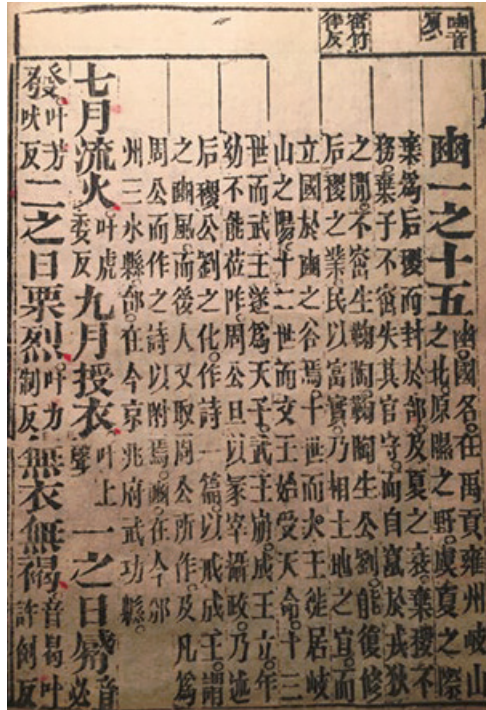 豳音
窋竹
律反
豳一之十五豳國名在禹貢雍州岐山
之北原隰之野虞夏之際
棄爲后稷而封於邰及夏之衰棄稷不
務棄子不窋失其官守而自竄於戎狄
之閒不窋生鞠陶鞠陶生公劉能復修
后稷之業民以富實乃相土地之宜而
立國於豳之谷焉十世而大王徙居岐
山之陽十二世而文王始受天命十三
世而武王遂爲天子武王崩成王立年
幼不能莅阼周公旦以冢宰攝政乃述
后稷公劉之化作詩一篇以戒成王謂
之豳風而後人又取周公所作及凡爲
周公而作之詩以附焉豳在今邠
州三水縣邰在今京兆府武功縣
七月流火叶虎委反九月授衣叶上聲一之日觱音必
發叶芳吠反二之日栗烈叶力制反無衣無褐音曷叶許例反